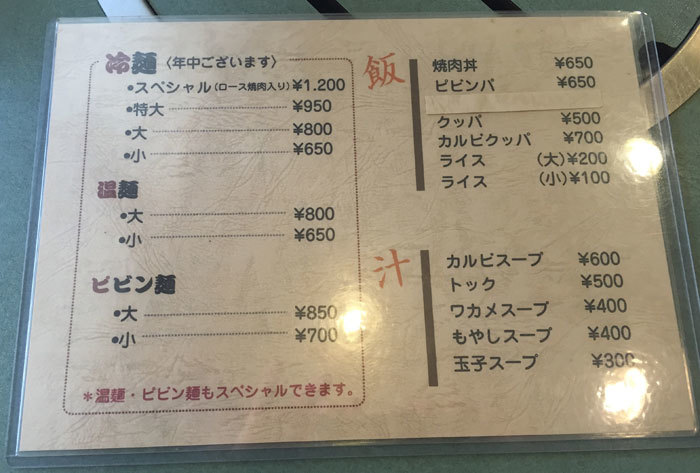 冷麺〈年中ございます〉
•スペシャル(ロース焼肉入り)¥1.200
•特大 ¥950
•大 ¥800
•小 ¥650
温麺
•大 ¥800
•小 ¥650
ビビン麺
•大 ¥850
•小 ¥700
*温麺・ビビン麺もスペシャルできます。
飯
焼肉丼 ¥650
ピビンパ ¥650
クッパ ¥500
カルビクッパ ¥700
ライス (大)¥200
ライス (小)¥100
汁
カルビスープ ¥600
トック ¥500
ワカメスープ ¥400
もやしスープ ¥400
玉子スープ ¥300